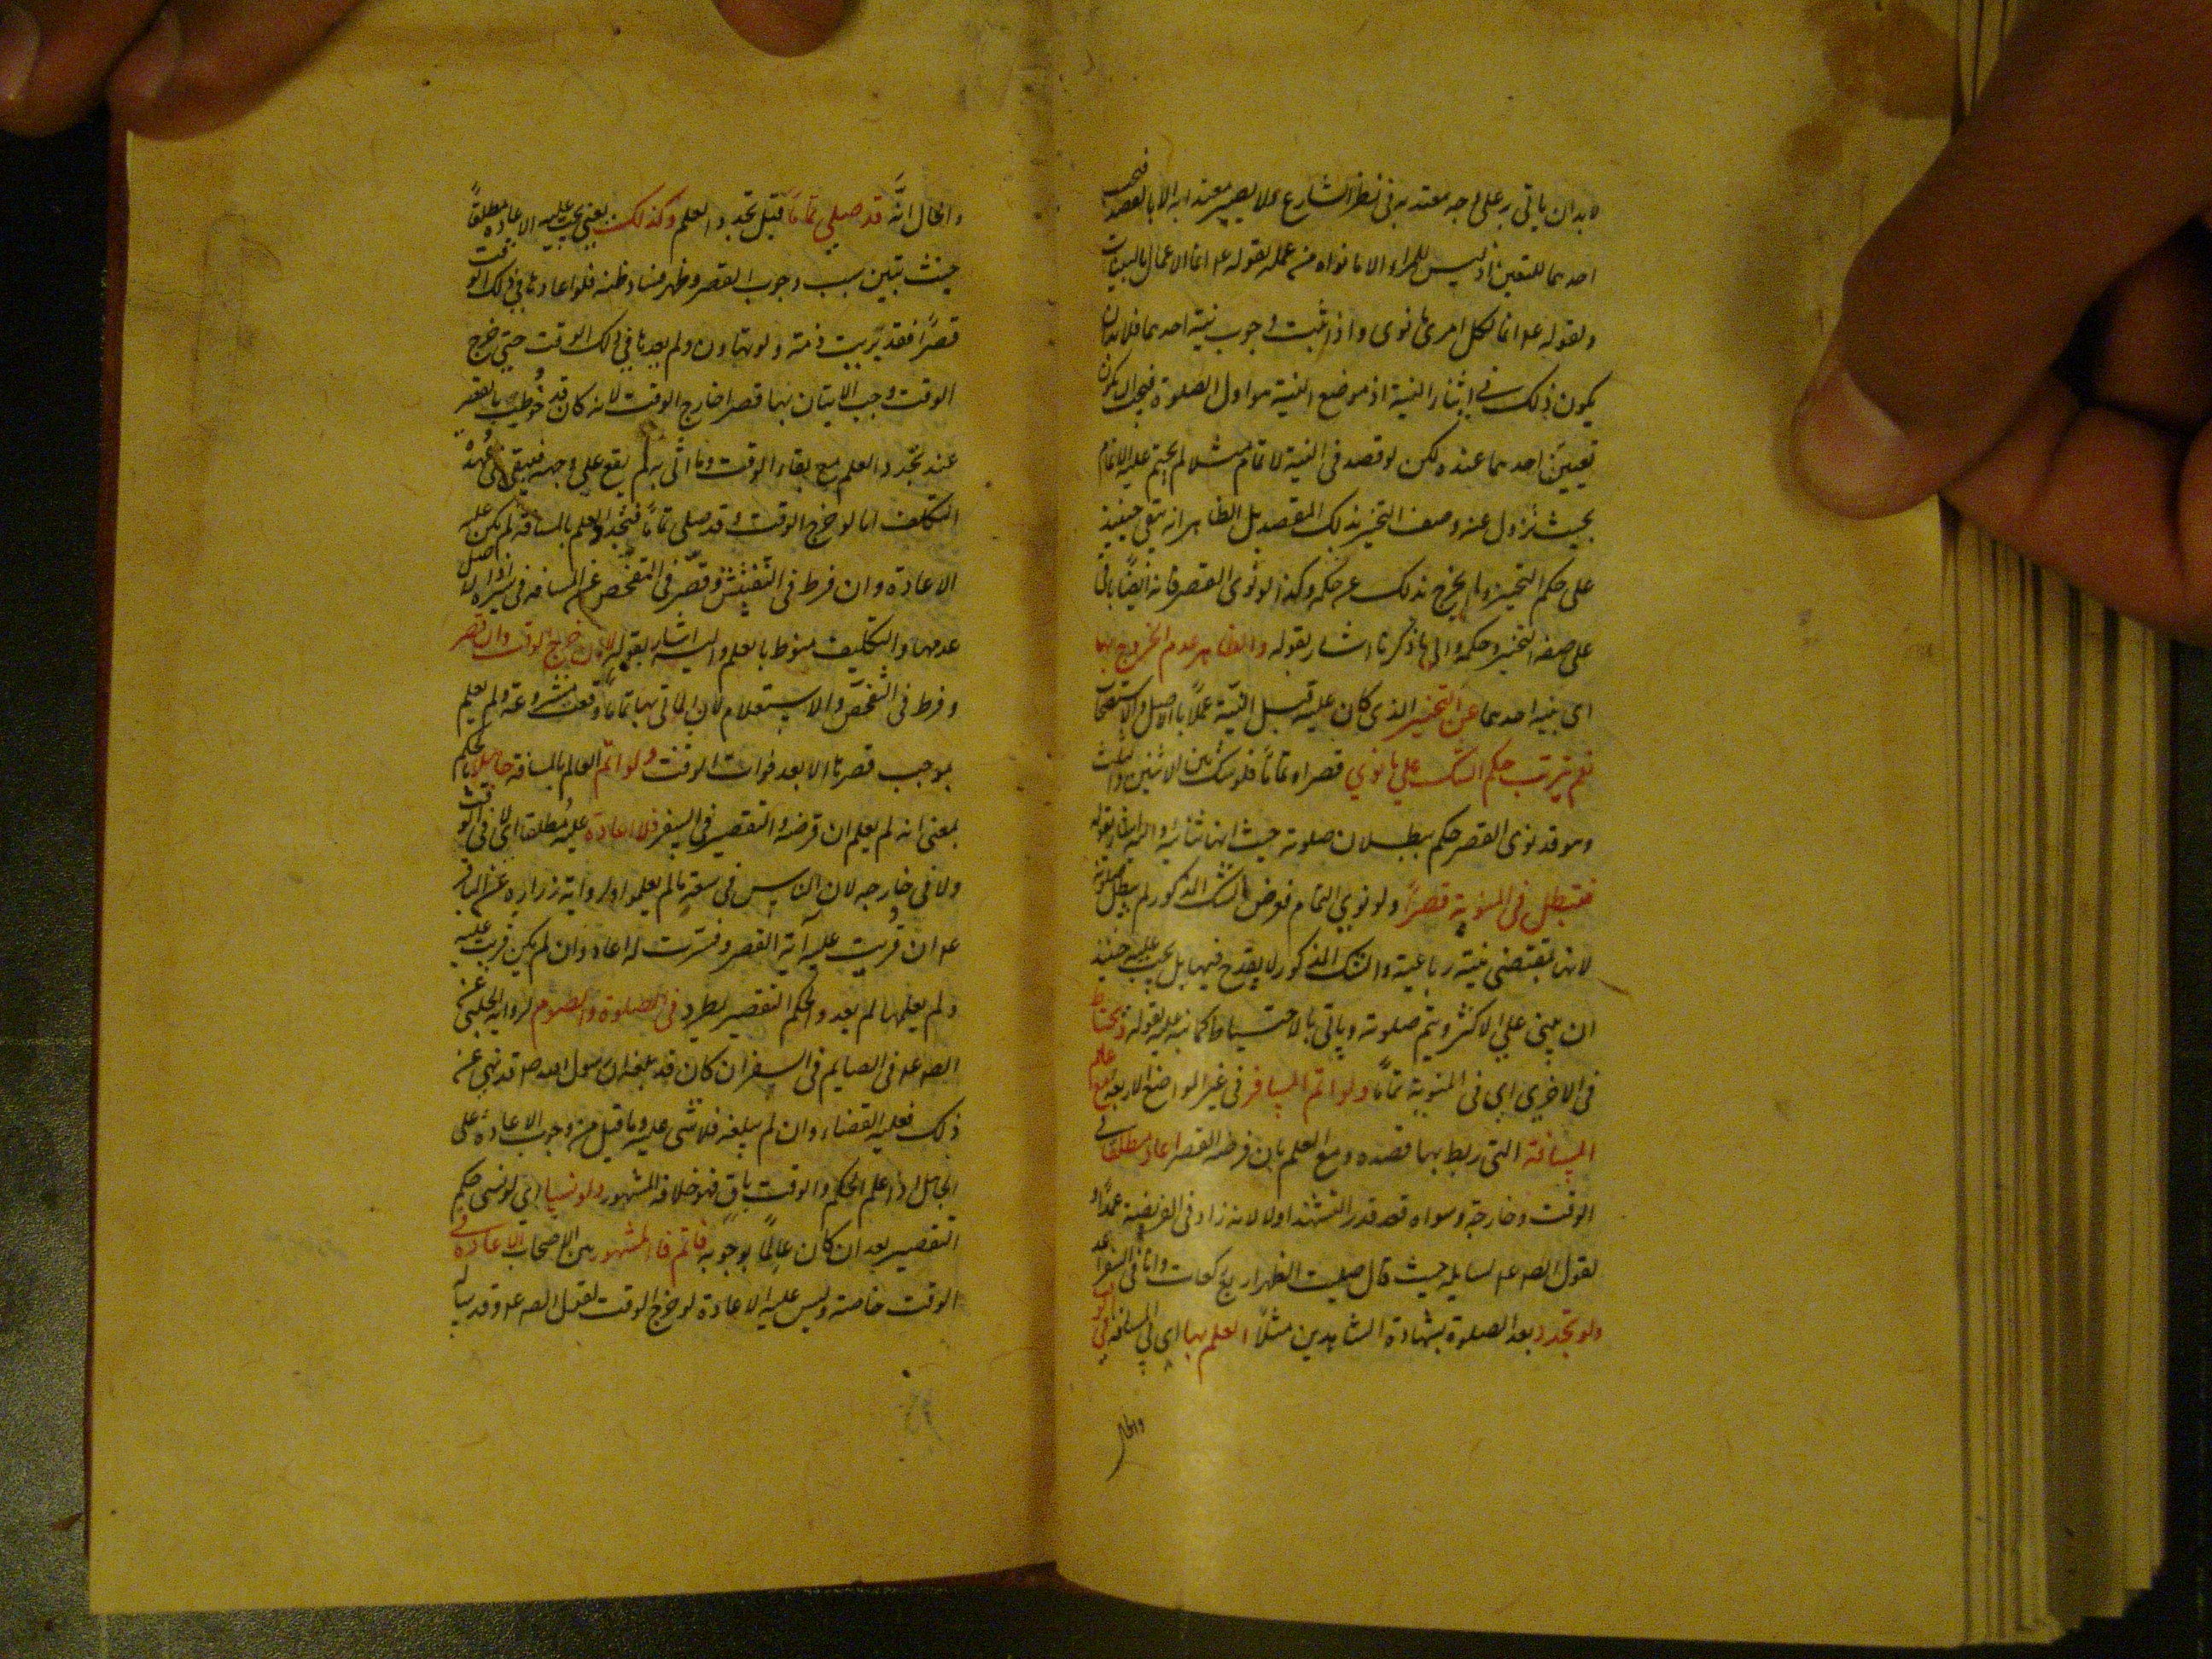 بد ان ياتي به على وجه معتد به في نظر الشارع ولا يصير معتدا به الا بالقصد فيجب
احدهما للتعين اذ ليس للمرء الا ما نواه من عمله لقوله عم انما الاعمال بالنيات
ولقوله عم انما لكل امرئ ما نوى واذا ثبت وجوب نية احدهما فلا بد ان
يكون ذلك في اثناء النية اذ موضع النية هو اول الصلوة فيجب ان يكون
تعيين احدهما عنده لكن لو قصد في النية لاتمام مثلا لم يحتم عليه الاتمام
بحيث تزول عنه وصف التخيير بذلك القصد بل الظاهر انه يبقى حينئذ
على حكم التخيير ولم يخرج بذلك عن حكمه وكذا لو نوى القصر فانه ايضا باق
على صفة التخيير وحكمه والى ما ذكرنا اشار بقوله والظاهر عدم الخروج بها
اى بنية احدهما عن التخيير الذي كان عليه قبل النية عملا بالاصل والاستصحاب
نعم يترتب حكم الشك على ما نوي قصرا او تماما فلو شك بين الاثنين والثلث
وهو قد نوى القصر حكم ببطلان صلوته حيث انها ثنائية واليه اشار بقوله
فتبطل في المنوية قصرا ولو نوي التمام فعرض الشك المذكور لم يبطل صلوته
لانها بمقتضى نيته رباعية والشك المذكور لا يقدح فيها بل يجب عليه حينئذ
ان يبني علي الاكثر ويتم صلوته وياتي بالاحتياط كما نبه عليه بقوله ويحتاط
في الاخرى اى في المنوية تماما ولو اتم المسافر في غير المواضع الاربعة مع علم
المسافة التى ربط بها قصده ومع العلم بان فرضه القصر اعاد مطلقا في
الوقت وخارجه وسواء قعد قدر التشهد اولا لانه زاد في الفريضة عمدا و
لقول الصه عم لسايله حيث قال صليت الظهر اربع ركعات وانا في السفر اعد
ولو تجدد بعد الصلوة بشهادة الشاهدين مثلا العلم بها اى بالمسافة في الوقت
والحال
والحال انه قد صلي تماما قبل تجدد العلم وكذلك يعني يجب عليه الاعادة مطلقا
حيث تبين سبب وجوب القصر وظهر فساد ظنه فلو اعادها في ذلك الوقت
قصرا فقد بريت ذمته ولو تهاون ولم يعدها في ذلك الوقت حتى خرج
الوقت وجب الاتيان بها قصرا خارج الوقت لانه كان قد خوطب بالقصر
عند تجدد العلم مع بقاء الوقت وما اتى به لم يقع على وجهه فيبقى في عهدة
التكليف اما لو خرج الوقت وقد صلى تماما فتجدد العلم بالمسافة لم يكن عليه
الاعادة وان فرط في التفتيش وقصر في التفحص عن المسافة في سيره اذ الاصل
عدمها والتكليف منوط بالعلم واليه اشار بقوله لا ان خرج الوقت وان قصر
وفرط في التفحص والاستعلام لان الماتي بها تماما وقعت مشروعة ولم يعلم
بموجب قصرها الا بعد فوات الوقت ولو اتم العالم بالمسافة جاهلا بالحكم
بمعنى انه لم يعلم ان فرضه التقصير في السفر فلا اعادة عليه مطلقا اى لا في الوقت
ولا في خارجه لان الناس في سعة ما لم يعلموا ولرواية زرارة عن الباقر
عم ان قريت عليه آية القصر وفسرت له اعاد وان لم يكن قريت عليه
ولم يعلمها لم يعد والحكم التقصير يطرد في الصلوة والصوم لرواية الحلبي عن
الصه عم في الصايم في السفر ان كان قد بلغه ان رسول الله ص قد نهى عن
ذلك فعليه القضاء وان لم يبلغه فلا شى عليه وما قيل من وجوب الاعادة على
الجاهل اذا علم الحكم والوقت باق فهو خلاف المشهور ولو نسيا اى لو نسى حكم
التقصير بعد ان كان عالما بوجوبه فاتم فالمشهور بين الاصحاب الاعادة في
الوقت خاصة وليس عليه الاعادة لو خرج الوقت لقول الصه عم وقد سياله